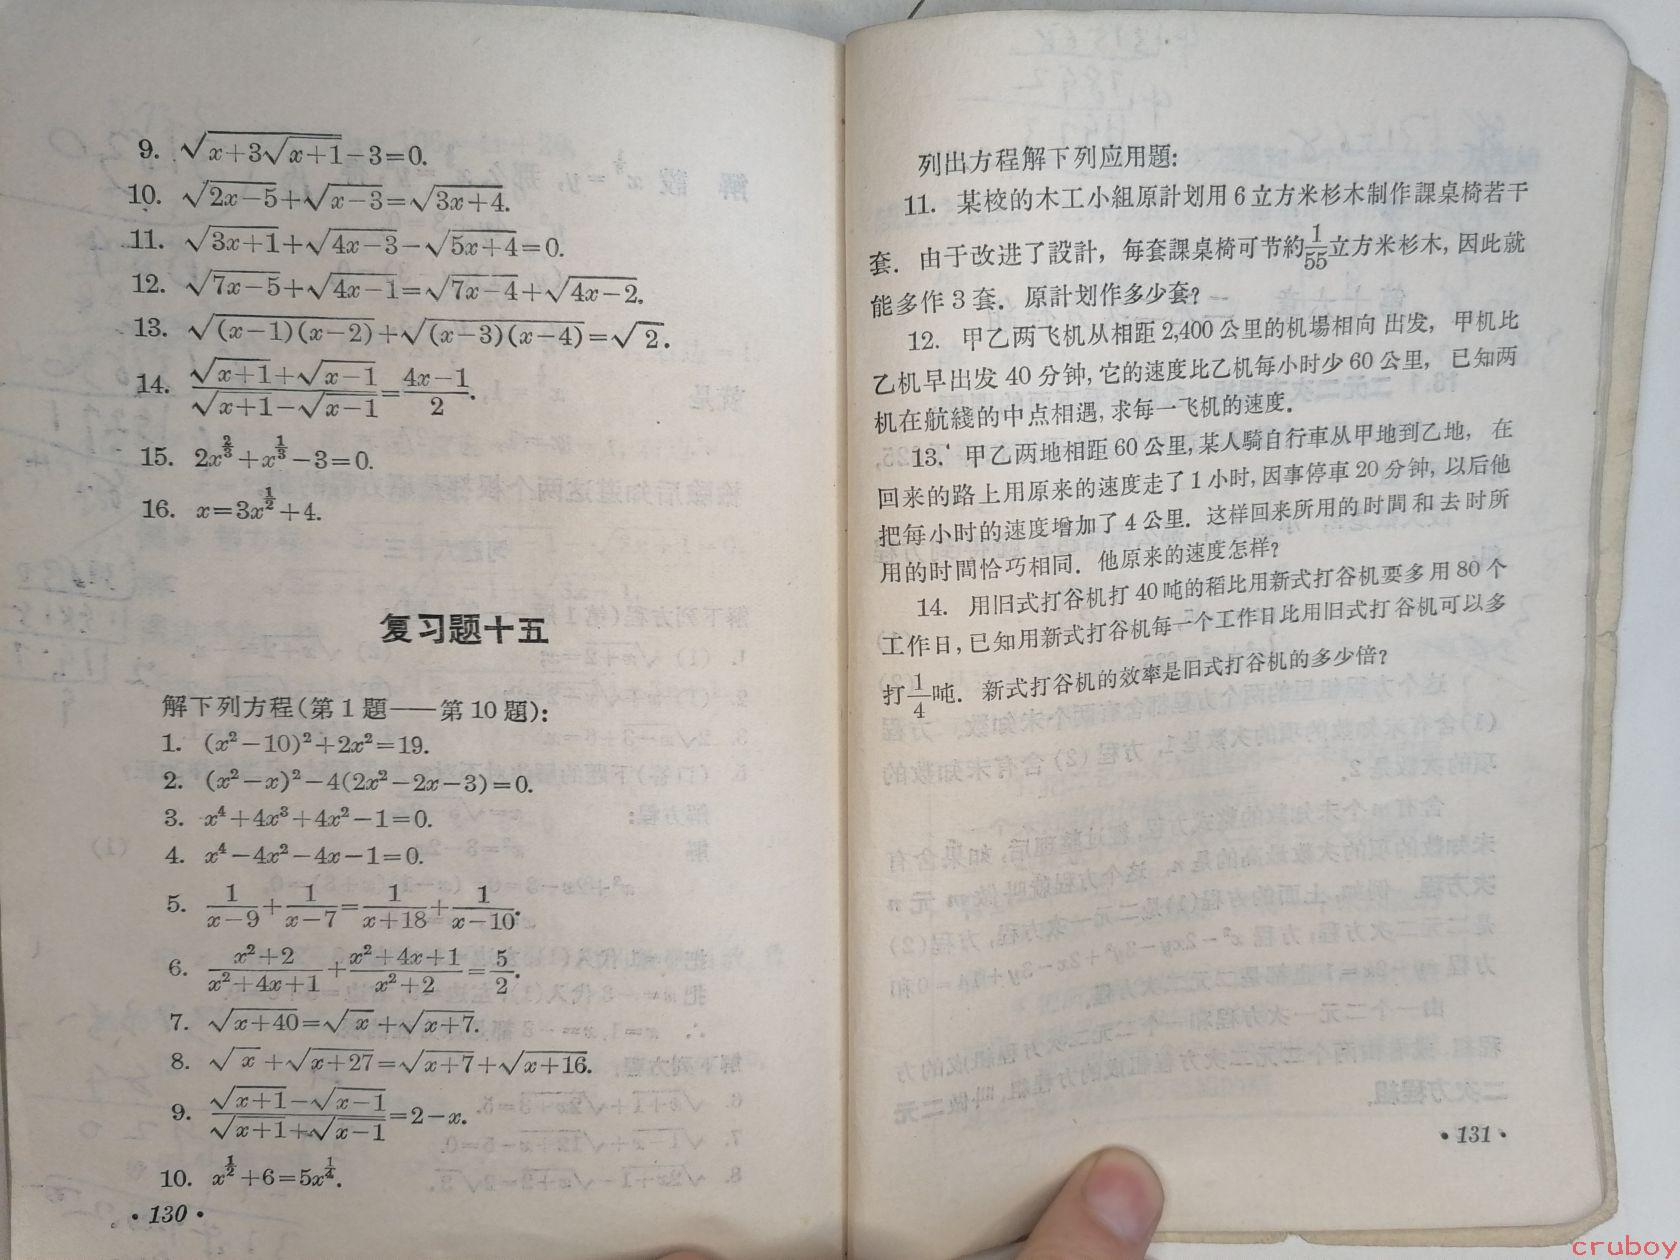 9. √(x+3√(x+1))-3=0.
10. √(2x-5)+√(x-3)=√(3x+4).
11. √(3x+1)+√(4x-3)-√(5x+4)=0.
12. √(7x-5)+√(4x-1)=√(7x-4)+√(4x-2).
13. √((x-1)(x-2))+√((x-3)(x-4))=√2.
14. (√(x+1)+√(x-1))/(√(x+1)-√(x-1))=(4x-1)/2.
15. 2x^(2/3)+x^(1/3)-3=0.
16. x=3x^(1/2)+4.
复习题十五
解下列方程(第1題——第10題):
1. (x²-10)²+2x²=19.
2. (x²-x)²-4(2x²-2x-3)=0.
3. x⁴+4x³+4x²-1=0.
4. x⁴-4x²-4x-1=0.
5. 1/(x-9)+1/(x-7)=1/(x+18)+1/(x-10).
6. (x²+2)/(x²+4x+1)+(x²+4x+1)/(x²+2)=5/2.
7. √(x+40)=√x+√(x+7).
8. √x+√(x+27)=√(x+7)+√(x+16).
9. (√(x+1)-√(x-1))/(√(x+1)+√(x-1))=2-x.
10. x^(1/2)+6=5x^(1/4).
·130·
列出方程解下列应用題:
11. 某校的木工小組原計划用6立方米杉木制作課桌椅若干
套. 由于改进了設計, 每套課桌椅可节約1/55立方米杉木, 因此就
能多作3套. 原計划作多少套?
12. 甲乙两飞机从相距2,400公里的机場相向出发, 甲机比
乙机早出发40分钟, 它的速度比乙机每小时少60公里, 已知两
机在航綫的中点相遇, 求每一飞机的速度.
13. 甲乙两地相距60公里, 某人騎自行車从甲地到乙地, 在
回来的路上用原来的速度走了1小时, 因事停車20分钟, 以后他
把每小时的速度增加了4公里. 这样回来所用的时間和去时所
用的时間恰巧相同. 他原来的速度怎样?
14. 用旧式打谷机打40吨的稻比用新式打谷机要多用80个
工作日, 已知用新式打谷机每一个工作日比用旧式打谷机可以多
打1/4吨. 新式打谷机的效率是旧式打谷机的多少倍?
·131·
cruboy